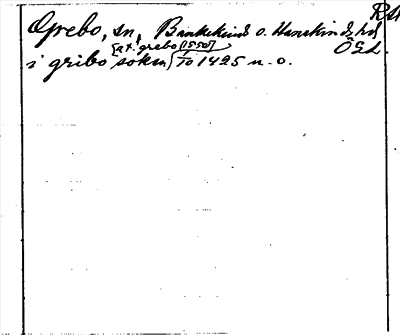 Grebo, sn, Bankekinds o. Hanekinds hd
ÖGL.
[at. grebo (1550)]
i gribo sokn To 1425 n. o.